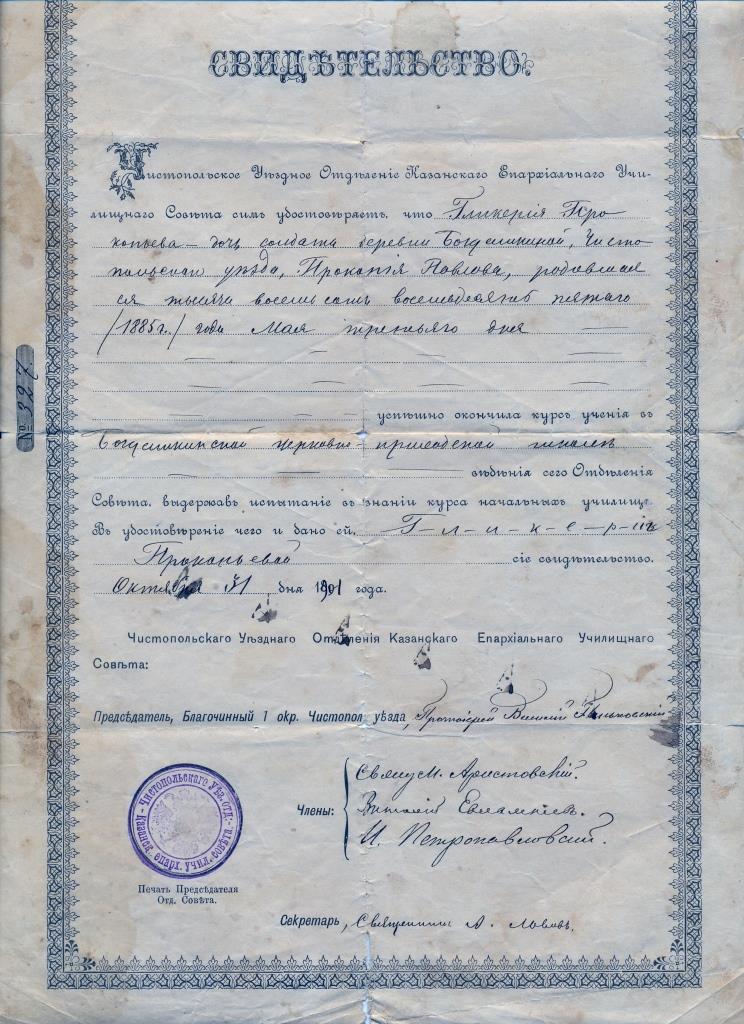 СВИДѢТЕЛЬСТВО.
Чистопольское Уѣздное Отдѣленіе Казанскаго Епархіальнаго Учи-
лищнаго Совѣта симъ удостовѣряетъ, что Гликерія Про
копьева - дочь солдата деревни Чисто
польскаго уѣзда, Прокопія Павлова, родившая
ся тысяча восемьсотъ восемьдесятъ пятаго
/1885 г./ года Мая третьяго дня
успѣшно окончила курсъ ученія въ
церковно-приходской школѣ
вѣдѣнія сего Отдѣленія
Совѣта, выдержавъ испытаніе въ знаніи курса начальныхъ училищъ.
Въ удостовѣреніе чего и дано ей, Г-л-и-к-е-р-іи
Прокопьевой сіе свидѣтельство.
Октября 31 дня 1901 года.
№ 327.
Чистопольскаго Уѣзднаго Отдѣленія Казанскаго Епархіальнаго Училищнаго
Совѣта:
Предсѣдатель, Благочинный 1 окр. Чистопол. уѣзда, Протоіерей
Члены:
Свящ. М. Аристовскій.
Виталій Евлампіевъ.
И. Петропавловскій.
Чистопольскаго Уѣз. отд. Казанск. епарх. учил. совѣта.
Печать Предсѣдателя
Отд. Совѣта.
Секретарь, Священникъ А.